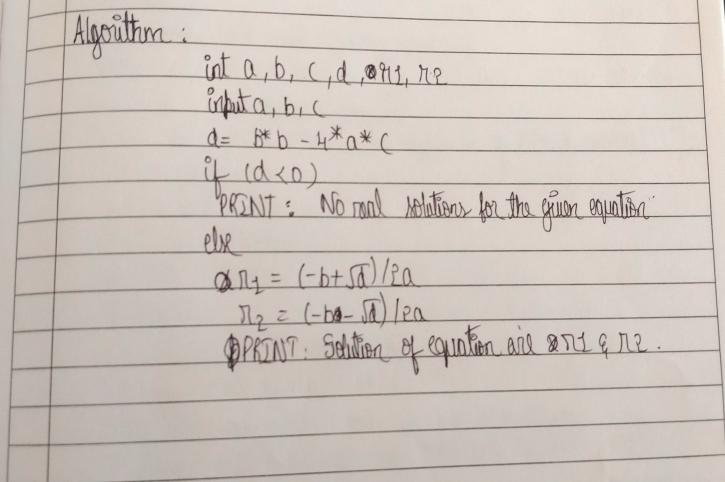 Algorithm :
int a, b, c, d, r1, r2
input a, b, c
d= b*b - 4*a*c
if (d<0)
PRINT : No real solutions for the given equation
else
r1 = (-b+√d)/2a
r2 = (-b-√d)/2a
PRINT: Solution of equation are r1 & r2.